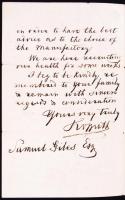 to have the best
advice as to the choice of
the Manufactory.
We are here recruiting
our health for some weeks.
I beg to be kindly re-
membered to your family
& remain with sincere
regards & consideration
Yours very truly
Samuel Giles Esq